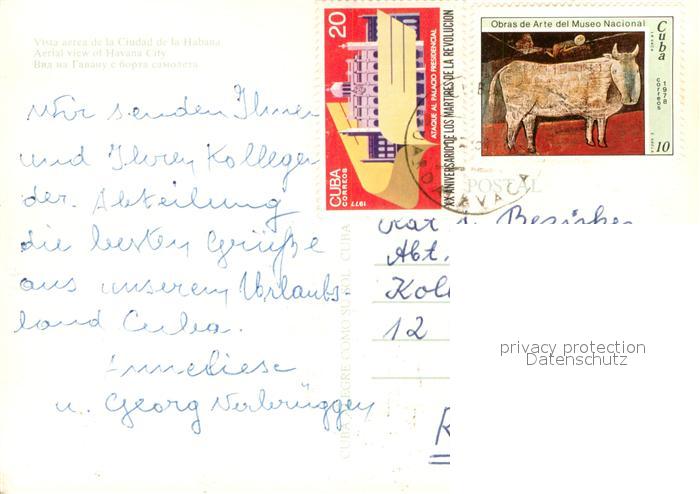 Vista aerea de la Ciudad de la Habana
Aerial view of Havana City
Вид на Гавану с борта самолета
Wir senden Ihnen
und Ihren Kollegen
der Abteilung
die besten Grüße
aus unserem Urlaubs-
land Cuba.
Anneliese
u. Georg Verbrüggen
20
CUBA
CORREOS
1977
ATAQUE AL PALACIO PRESIDENCIAL
XX ANIVERSARIO DE LOS MARTIRES DE LA REVOLUCION
Obras de Arte del Museo Nacional
Cuba
correos
1978
10
POSTAL
CUBA ALEGRE COMO SU SOL CUBA
Abt.
Kol
12
privacy protection
Datenschutz